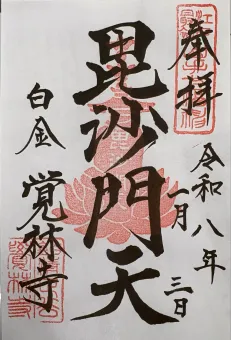 奉拝
令和八年
一月三日
毘沙門天
白金
覚林寺